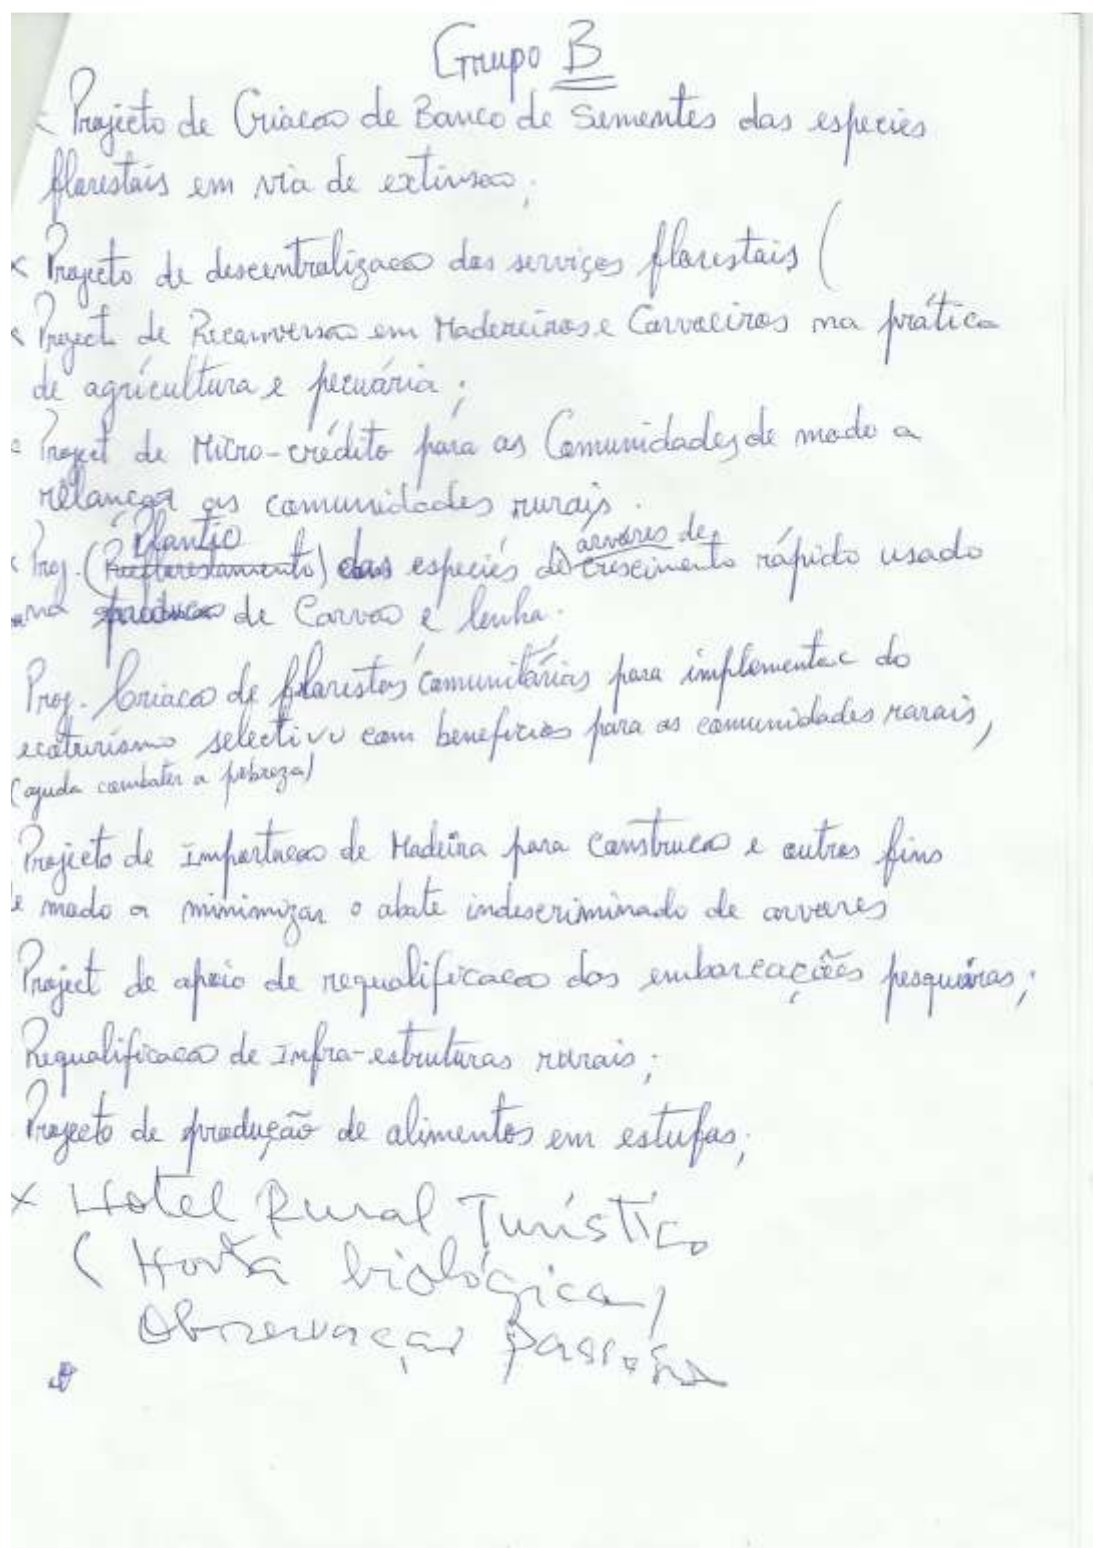 Grupo B
- Projecto de Criacao de Banco de Sementes das especies
florestais em via de extinsao;
x Projecto de descentralizacao dos serviços florestais (
x Project de Reconversao em Madereiros e Carvoeiros na prática
de agrícultura e pecuária;
Project de Micro-crédito para as Comunidades de modo a
relançar as comunidades rurais.
Plantio árvores de
x Proj. (Reflorestamento) das especiés de crescimento rápido usado
na producao de Carvao e lenha.
Proj. Criacao de florestas comunitárias para implementac do
ecoturismo selectivo com beneficios para as comunidades rurais,
(ajuda combater a pobreza)
Projecto de Importacao de Madeira para construcao e outros fins
e modo a minimizar o abate indescriminado de arvores
Project de apoio de requalificacao dos embarcações pesqueiras;
Requalificacao de Infra-estruturas rurais;
Projecto de produção de alimentos em estufas;
x Hotel Rural Turístico
( Horta biológica,
Observaçao